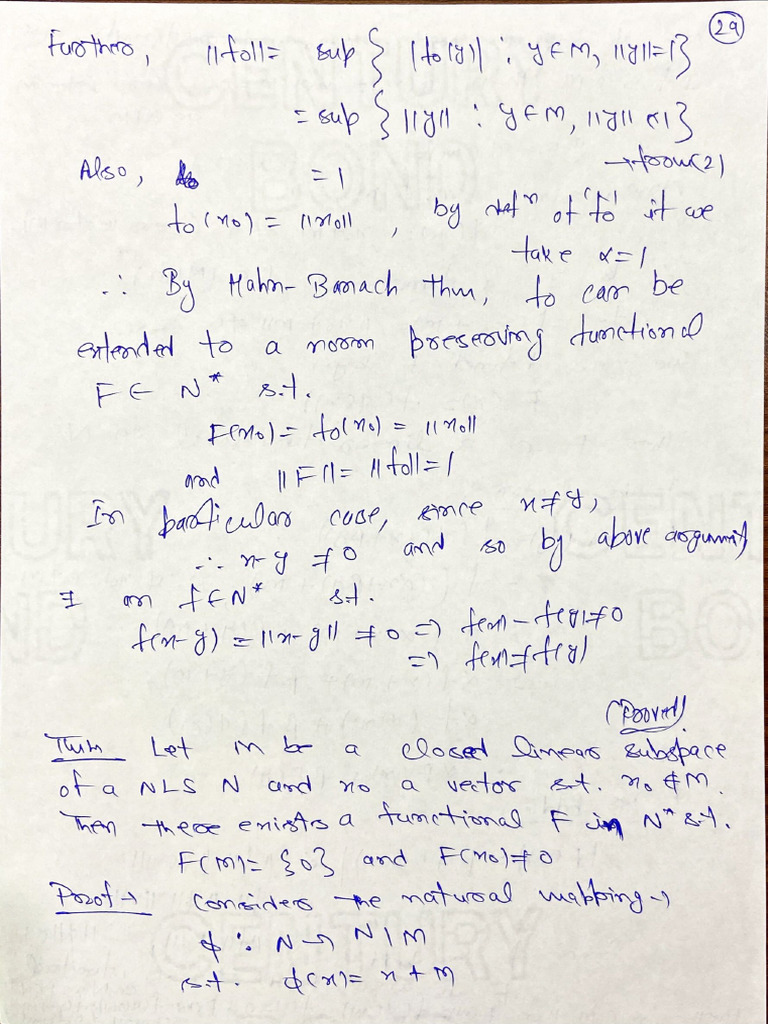 29
Further, ||fo|| = sup { |fo(y)| : y∈M, ||y||=1}
= sup { ||y|| : y∈M, ||y|| ≤1}
→from(2)
Also, = 1
fo(x0) = ||x0||, by defn of 'fo' if we
take α=1
∴ By Hahn-Banach thm, fo can be
extended to a norm preserving functional
F ∈ N* s.t.
F(x0) = fo(x0) = ||x0||
and ||F|| = ||fo|| = 1
In particular case, since x≠y,
∴ x-y ≠0 and so by above argument
∃ an f∈N* s.t.
f(x-y) = ||x-y|| ≠0 => f(x) - f(y)≠0
=> f(x)≠f(y)
(Proved)
Thm Let M be a closed linear subspace
of a NLS N and x0 a vector s.t. x0 ∉M.
Then there exists a functional F in N* s.t.
F(M)= {0} and F(x0)≠0
Proof→ Consider the natural mapping→
φ : N→ N|M
s.t. φ(x)= x+M